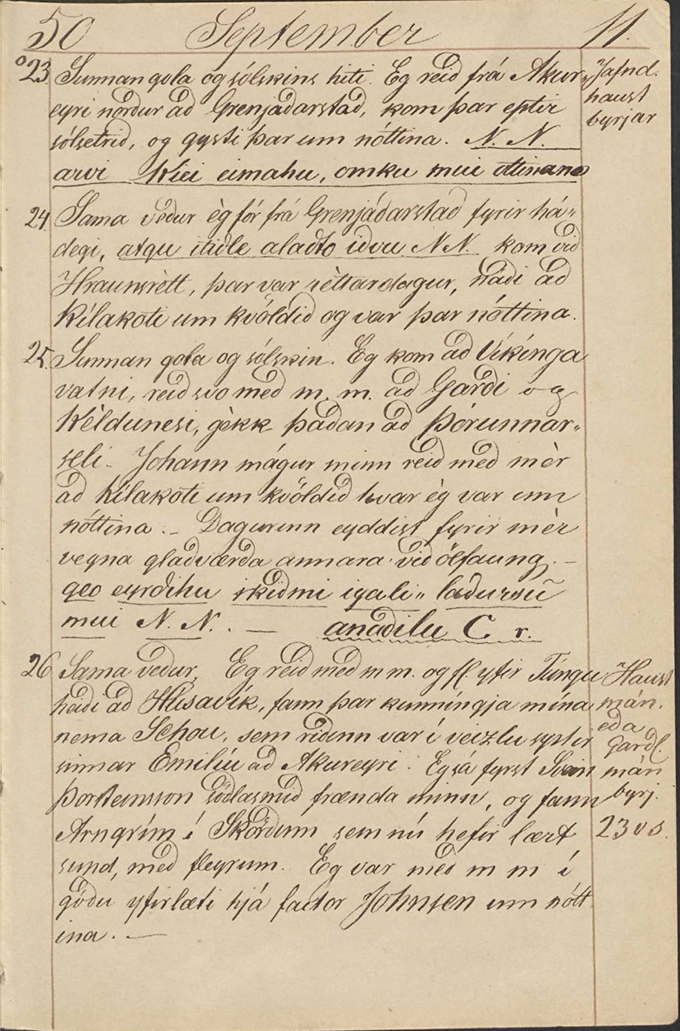 50 September 11.
23. Sunnan gola og sólskins hiti. Eg reið frá Akur-
eyri norður að Grenjaðarstað, kom þar eptir
sólsetrið, og gysti þar um nóttina. N. N.
arvi Kiei eimahu, omku mui ottinano
Jafnd.
haust
byrjar
24 Sama veður èg fór frá Grenjáðarstað fyrir há-
degi, atqu itidle alaðto iðvu N.N. kom við
Hraunsrétt, þar var réttardagur, náði að
Kílakoti um kvöldið og var þar nóttina.
25. Sunnan gola og sólskin. Eg kom að Víkinga
vatni, reið svo með m. m. að Garði og
Kèldunesi, gèkk þaðan að Þórunnar-
seli. Jóhann mágur minn reið með mèr
að Kílakoti um kvöldið hvar èg var um
nóttina. – Dagurinn eyddist fyrir mèr
vegna glaðværða annara við ölfaung. –
qeo eyrðihu skiðmi igali" laðursu
mui N. N. — anaðilu C r.
26 Sama veður, Eg reið með m m. og fl. yfir Túngu
heiði að Húsavík, fann þar kunningja mína
nema Schou, sem riðinn var í veizlu systir
sinnar Emilíu að Akureyri. Eg sá fyrst Svein
Þorsteinsson söðlasmið frænda minn, og fann
Arngrím í Skörðum sem nú hefir lært
sund, með fleyrum. Eg var með m m í
góðu yfirlæti hjá factor Johnsen um nótt
ina. —
Haust
mán.
eða
Garðl.
mán
byrj.
23 v s.